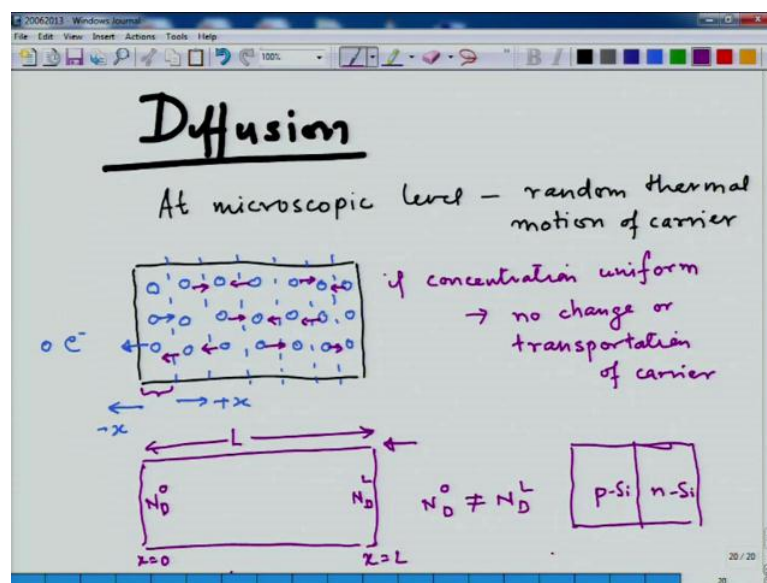 20062013 - Windows Journal
File Edit View Insert Actions Tools Help
100%
B I
Diffusion
At microscopic level — random thermal
motion of carrier
if concentration uniform
→ no change or
transportation
of carrier
o e⁻
-x
→ +x
L
N_D^0
N_D^L
N_D^0 ≠ N_D^L
p-Si
n-Si
x=0
x=L
20 / 20
20